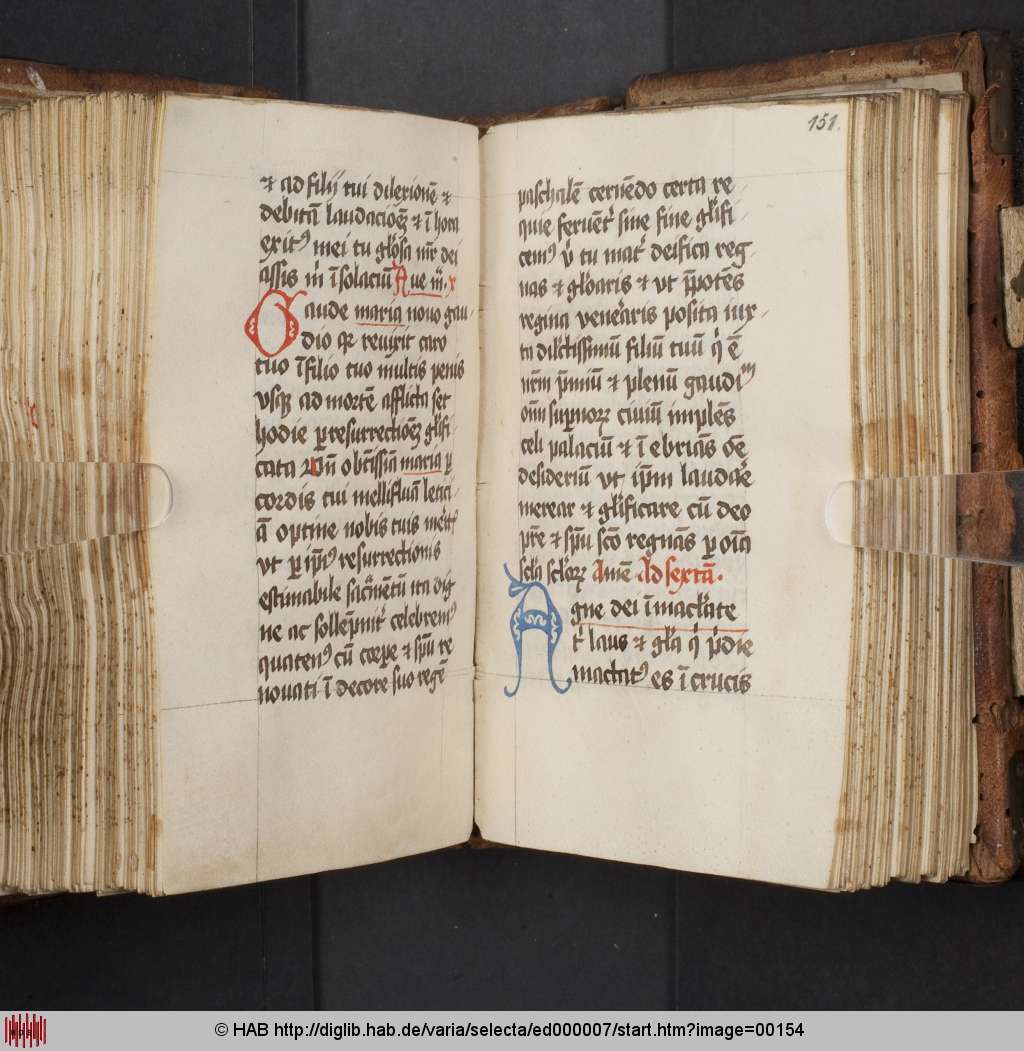 ⁊ ad filij tui dilexionē ⁊
debitā laudacioēȝ ⁊ ī hora
exitꝰ mei tu gl̄osa mr̄ dei
assis m̄ ī solaciū Aue m̄. x
Gaude maria nouo gau-
dio qr reuixit caro
tuo ī filio tuo multis penis
vsqȝ ad mortē afflicta set
hodie p resurrectioēȝ gl̄ifi
cata obtīssiā maria p
cordis tui mellifluā letici-
ā optine nobis tuis mer̄tꝰ
vt p ip̄iꝰ resurrectionis
estimabile sac̄mētū ita dig
ne ac sollēpnit̄ celebremꝰ
quatenꝰ cū corpe ⁊ spū re
nouati ī decore suo regē
151.
paschalē cernēdo certa re-
quie feruēt̄ sine fine gl̄ifi-
cemꝰ v̄ tu mat̄ deifica reg-
nas ⁊ gl̄oaris ⁊ vt p̄potēs
regina vener̄aris posita iux-
ta dilc̄tissimū filiū tuū q̄ ē
nr̄m p̄miū ⁊ plenū gaudiū
om̄ supnorꝝ ciuiū implēs
celi palaciū ⁊ ī ebriās oē
desideriū vt ip̄m laudar̄e
merear ⁊ gl̄ificare cū deo
pr̄e ⁊ spū scō regnās p oīa
scl̄a scl̄orꝝ Amē Ad sextā.
Agne dei īmacl̄ate
t̄ laus ⁊ gl̄a q̄ p̄die
mactatꝰ es ī crucis
HAB
© HAB http://diglib.hab.de/varia/selecta/ed000007/start.htm?image=00154